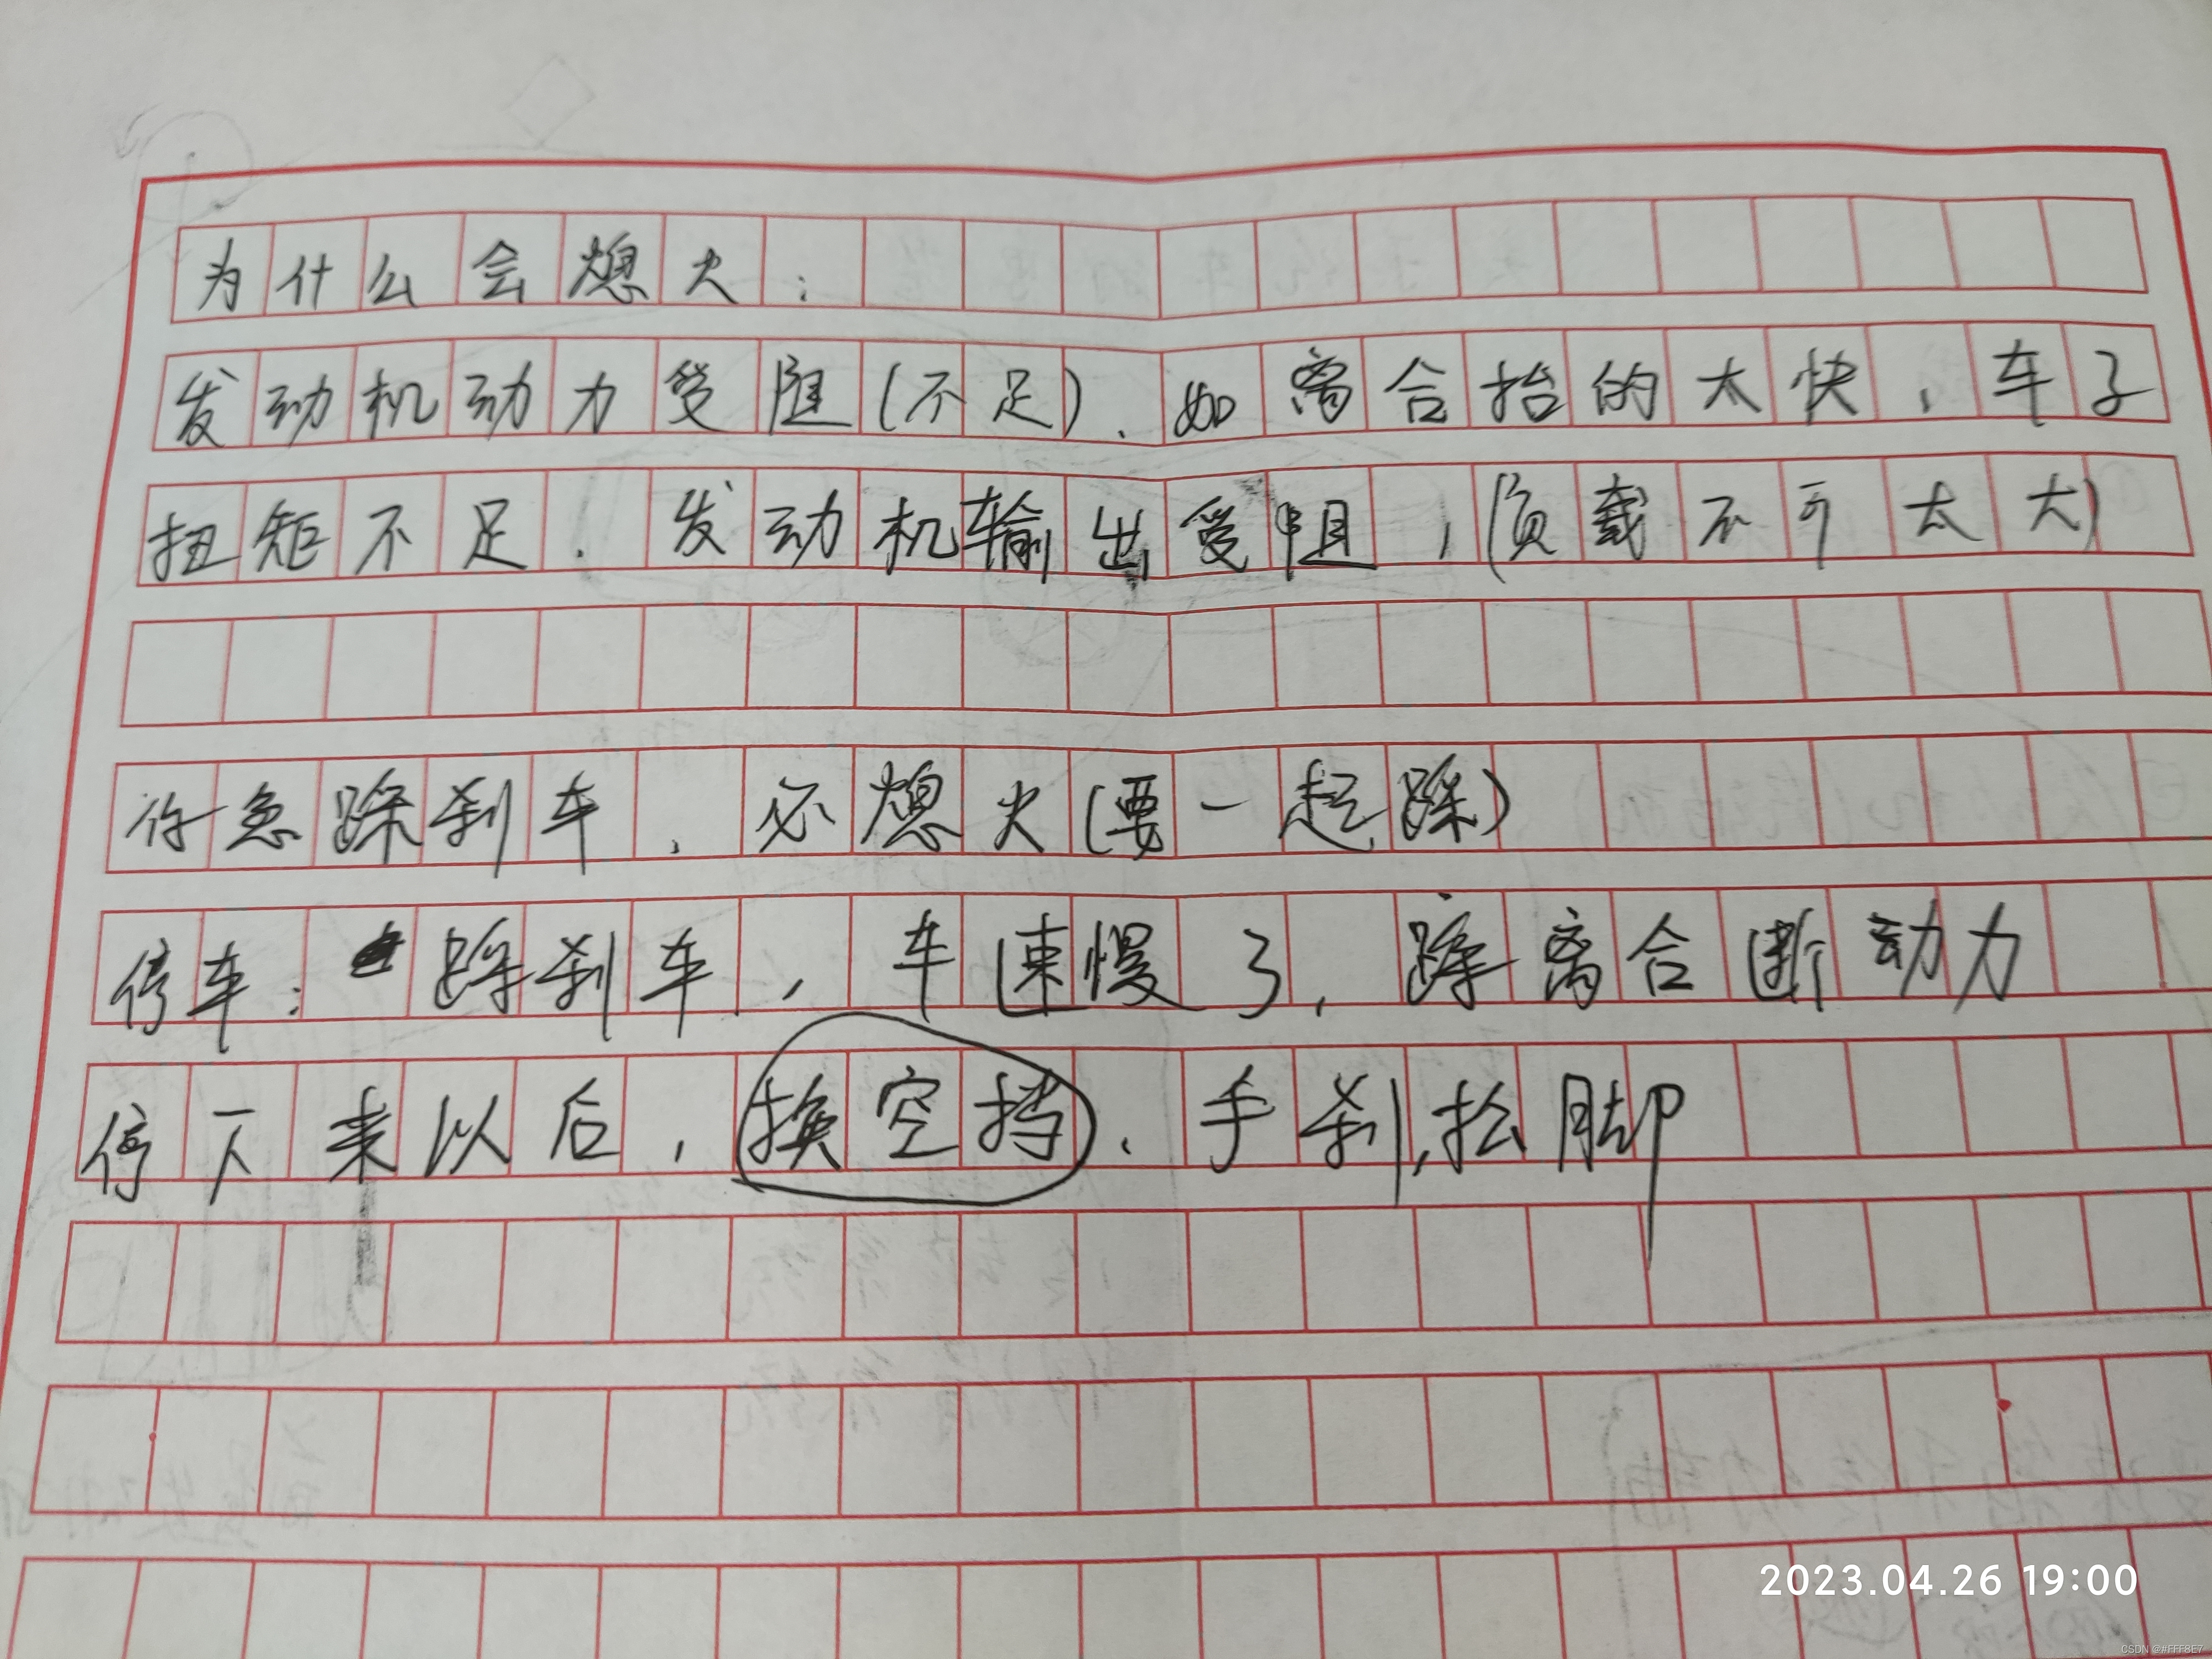 为什么会熄火:
发动机动力受阻(不足),如离合抬的太快,车子
扭矩不足,发动机输出受阻,(负载不可太大)
你急踩刹车,必熄火(要一起踩)
停车:踩刹车,车速慢了,踩离合断动力
停下来以后,换空挡,手刹,松脚
2023.04.26 19:00
CSDN @#FFF8E7